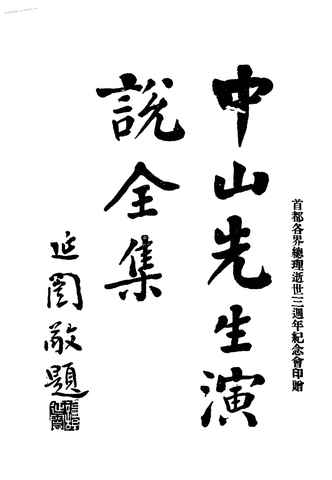 首都各界總理逝世三週年紀念會印贈
中山先生演
說全集
延闓敬題